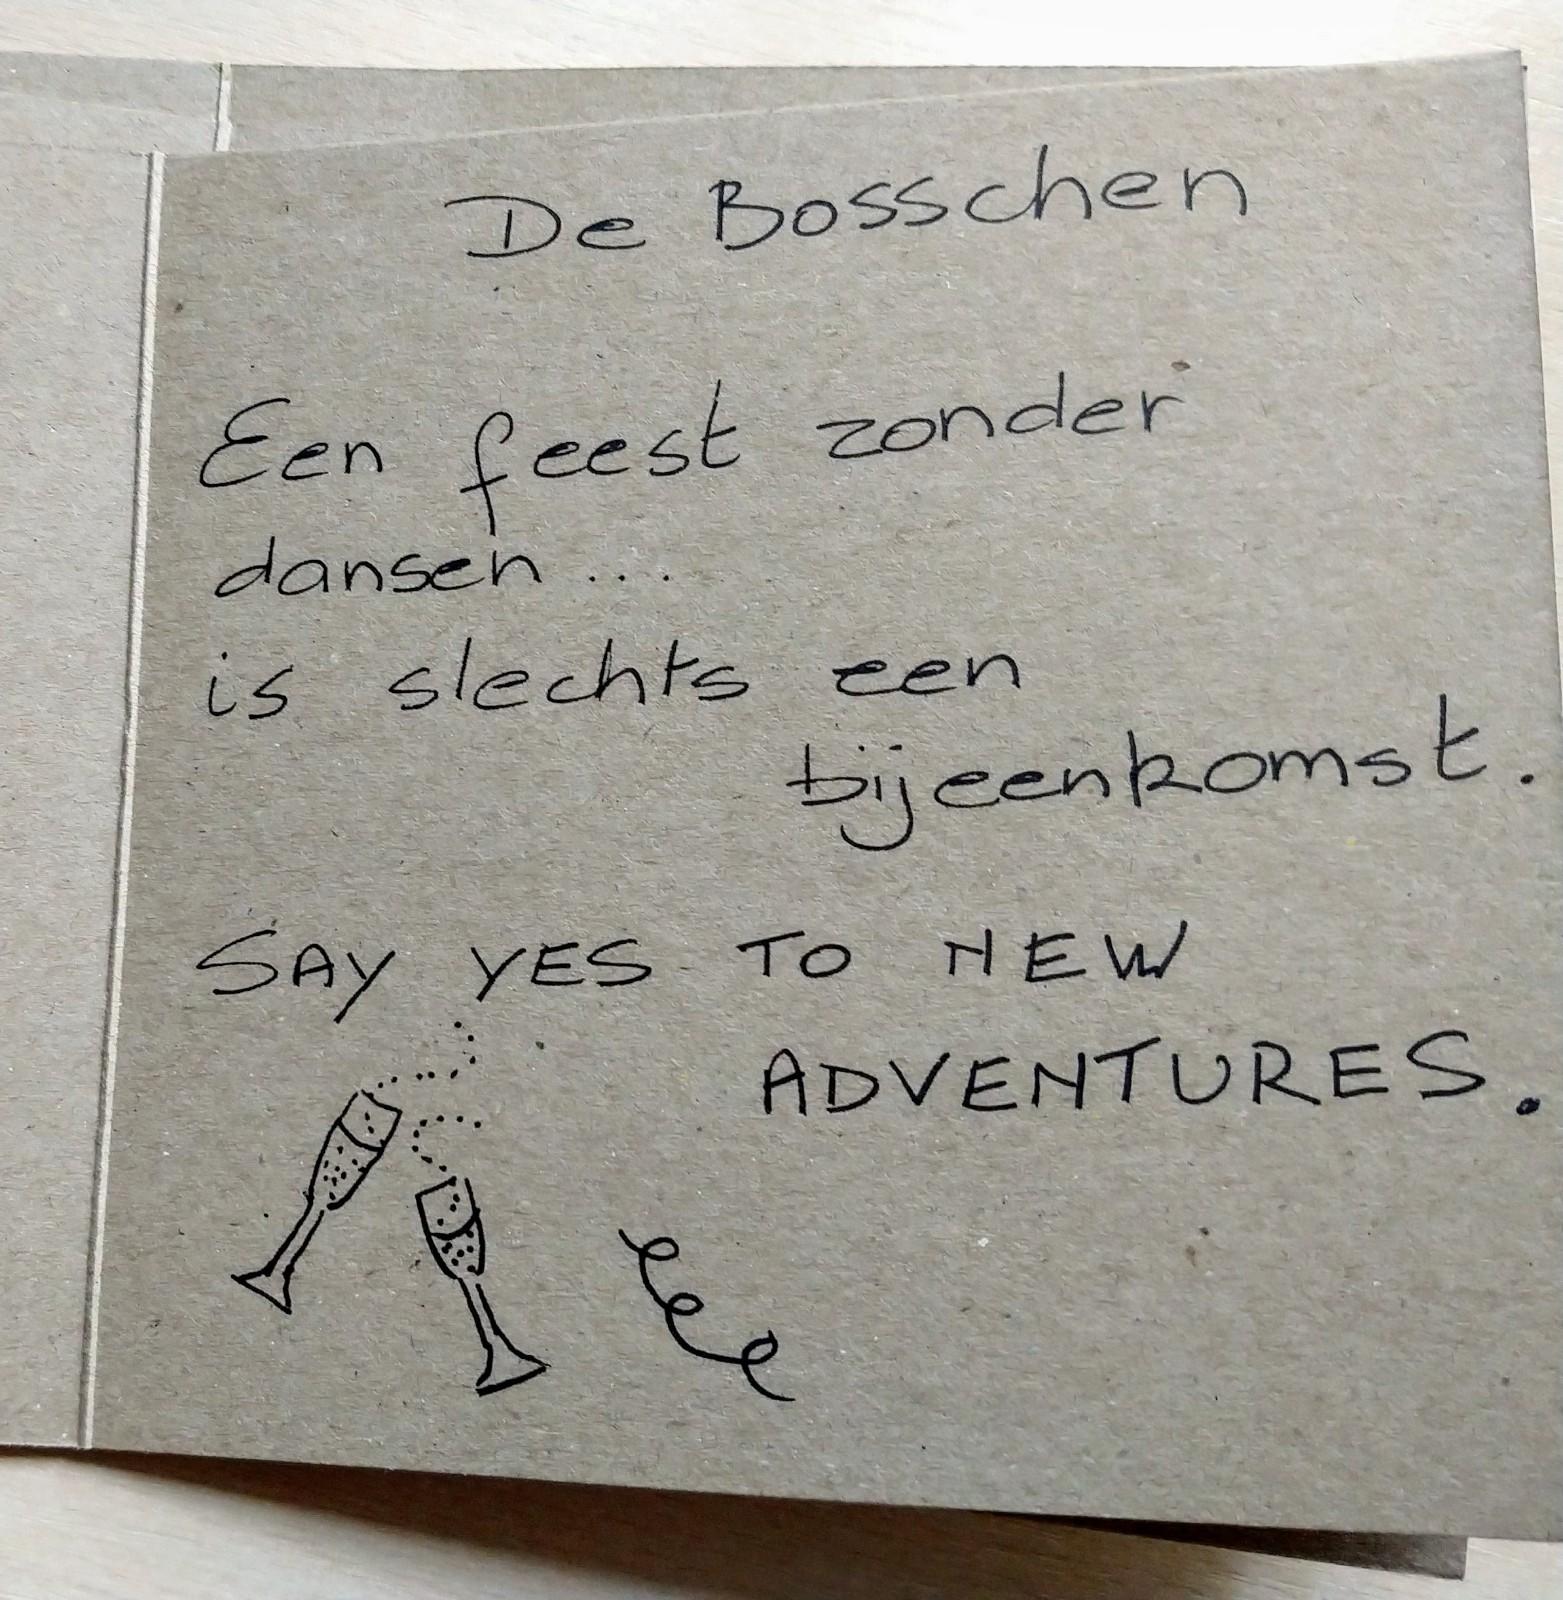 De Bosschen
Een feest zonder
dansen...
is slechts een
bijeenkomst.
SAY YES TO NEW
ADVENTURES.